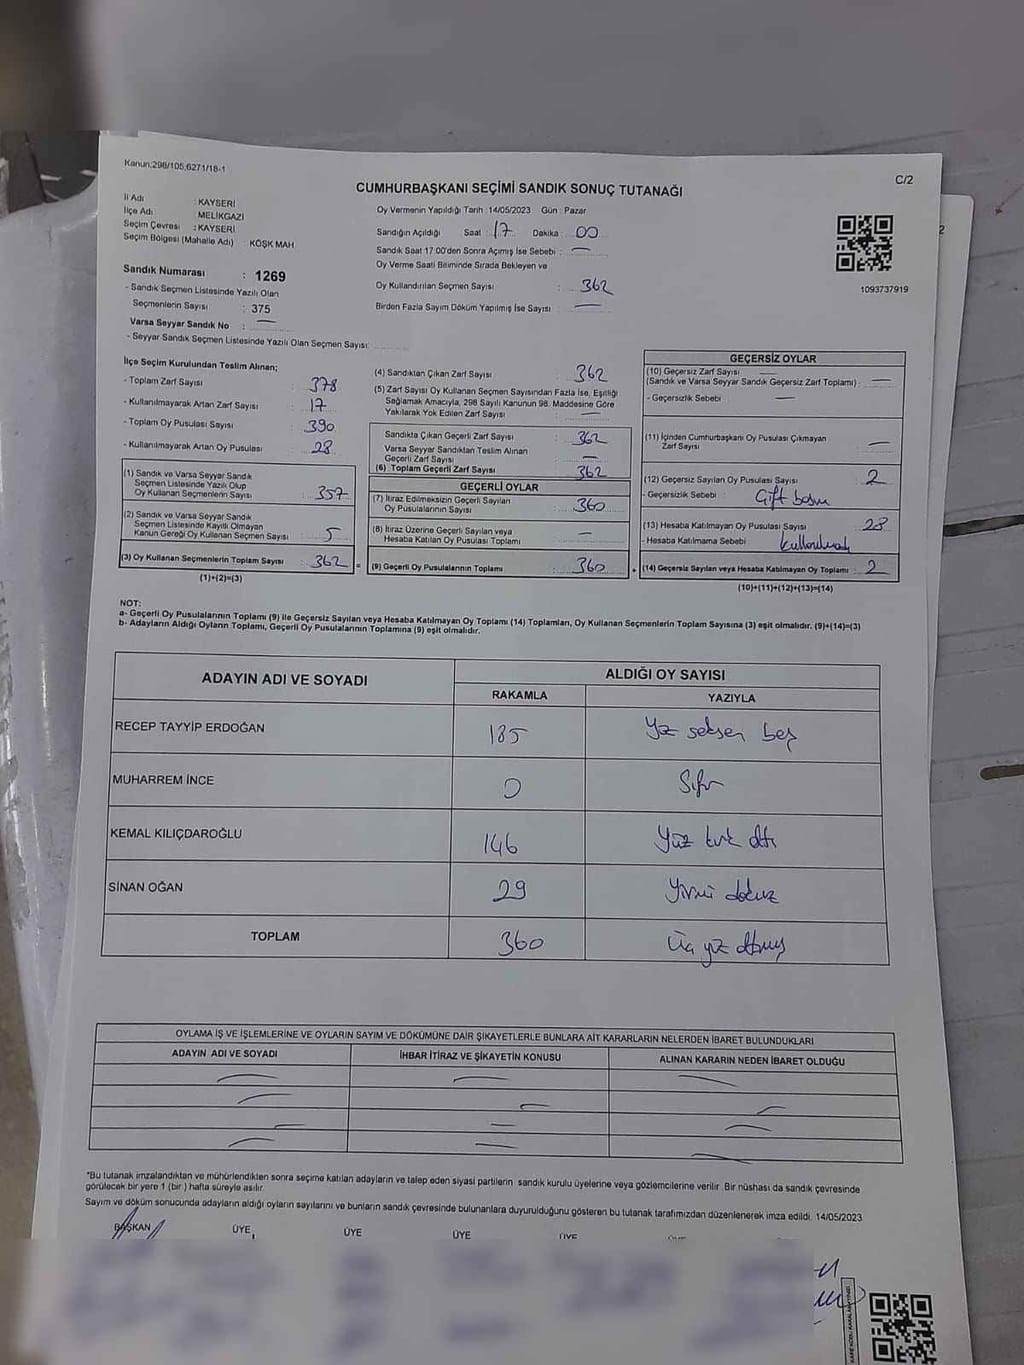 Kanun:298/105,6271/18-1
C/2
CUMHURBAŞKANI SEÇİMİ SANDIK SONUÇ TUTANAĞI
İl Adı : KAYSERİ
İlçe Adı : MELİKGAZİ
Seçim Çevresi : KAYSERİ
Seçim Bölgesi (Mahalle Adı) : KÖŞK MAH
Sandık Numarası : 1269
- Sandık Seçmen Listesinde Yazılı Olan
Seçmenlerin Sayısı : 375
Varsa Seyyar Sandık No : —
- Seyyar Sandık Seçmen Listesinde Yazılı Olan Seçmen Sayısı:
Oy Vermenin Yapıldığı Tarih :14/05/2023 Gün : Pazar
Sandığın Açıldığı Saat : 17 Dakika : 00
Sandık Saat 17:00'den Sonra Açımış İse Sebebi : —
Oy Verme Saati Bitiminde Sırada Bekleyen ve
Oy Kullandırılan Seçmen Sayısı : 362
Birden Fazla Sayım Döküm Yapılmış İse Sayısı : —
1093737919
2
İlçe Seçim Kurulundan Teslim Alınan;
- Toplam Zarf Sayısı : 378
- Kullanılmayarak Artan Zarf Sayısı : 17
- Toplam Oy Pusulası Sayısı : 390
- Kullanılmayarak Artan Oy Pusulası : 28
(1) Sandık ve Varsa Seyyar Sandık
Seçmen Listesinde Yazılı Olup
Oy Kullanan Seçmenlerin Sayısı : 357
(2) Sandık ve Varsa Seyyar Sandık
Seçmen Listesinde Kayıtlı Olmayan
Kanun Gereği Oy Kullanan Seçmen Sayısı : 5
(3) Oy Kullanan Seçmenlerin Toplam Sayısı : 362 =
(1)+(2)=(3)
(4) Sandıktan Çıkan Zarf Sayısı : 362
(5) Zarf Sayısı Oy Kullanan Seçmen Sayısından Fazla İse, Eşitliği
Sağlamak Amacıyla, 298 Sayılı Kanunun 98. Maddesine Göre
Yakılarak Yok Edilen Zarf Sayısı : —
Sandıkta Çıkan Geçerli Zarf Sayısı : 362
Varsa Seyyar Sandıktan Teslim Alınan
Geçerli Zarf Sayısı : —
(6) Toplam Geçerli Zarf Sayısı : 362
GEÇERLİ OYLAR
(7) İtiraz Edilmeksizin Geçerli Sayılan
Oy Pusulalarının Sayısı : 360
(8) İtiraz Üzerine Geçerli Sayılan veya
Hesaba Katılan Oy Pusulası Toplamı : —
(9) Geçerli Oy Pusulalarının Toplamı : 360 +
GEÇERSİZ OYLAR
(10) Geçersiz Zarf Sayısı
(Sandık ve Varsa Seyyar Sandık Geçersiz Zarf Toplamı) : —
- Geçersizlik Sebebi : —
(11) İçinden Cumhurbaşkanı Oy Pusulası Çıkmayan
Zarf Sayısı : —
(12) Geçersiz Sayılan Oy Pusulası Sayısı : 2
- Geçersizlik Sebebi : Çift basım
(13) Hesaba Katılmayan Oy Pusulası Sayısı : 28
- Hesaba Katılmama Sebebi :
(14) Geçersiz Sayılan veya Hesaba Katılmayan Oy Toplamı : 2
(10)+(11)+(12)+(13)=(14)
NOT:
a- Geçerli Oy Pusulalarının Toplamı (9) ile Geçersiz Sayılan veya Hesaba Katılmayan Oy Toplamı (14) Toplamları, Oy Kullanan Seçmenlerin Toplam Sayısına (3) eşit olmalıdır. (9)+(14)=(3)
b- Adayların Aldığı Oyların Toplamı, Geçerli Oy Pusulalarının Toplamına (9) eşit olmalıdır.
ADAYIN ADI VE SOYADI
ALDIĞI OY SAYISI
RAKAMLA YAZIYLA
RECEP TAYYİP ERDOĞAN 185 Yüz seksen beş
MUHARREM İNCE 0 Sıfır
KEMAL KILIÇDAROĞLU 146 Yüz kırk altı
SİNAN OĞAN 29 Yirmi dokuz
TOPLAM 360 Üç yüz altmış
OYLAMA İŞ VE İŞLEMLERİNE VE OYLARIN SAYIM VE DÖKÜMÜNE DAİR ŞİKAYETLERLE BUNLARA AİT KARARLARIN NELERDEN İBARET BULUNDUKLARI
ADAYIN ADI VE SOYADI İHBAR İTİRAZ VE ŞİKAYETİN KONUSU ALINAN KARARIN NEDEN İBARET OLDUĞU
*Bu tutanak imzalandıktan ve mühürlendikten sonra seçime katılan adayların ve talep eden siyasi partilerin sandık kurulu üyelerine veya gözlemcilerine verilir. Bir nüshası da sandık çevresinde
görülecek bir yere 1 (bir ) hafta süreyle asılır.
Sayım ve döküm sonucunda adayların aldığı oyların sayılarını ve bunların sandık çevresinde bulunanlara duyurulduğunu gösteren bu tutanak tarafımızdan düzenlenerek imza edildi. 14/05/2023
BAŞKAN ÜYE ÜYE ÜYE ÜYE ÜYE